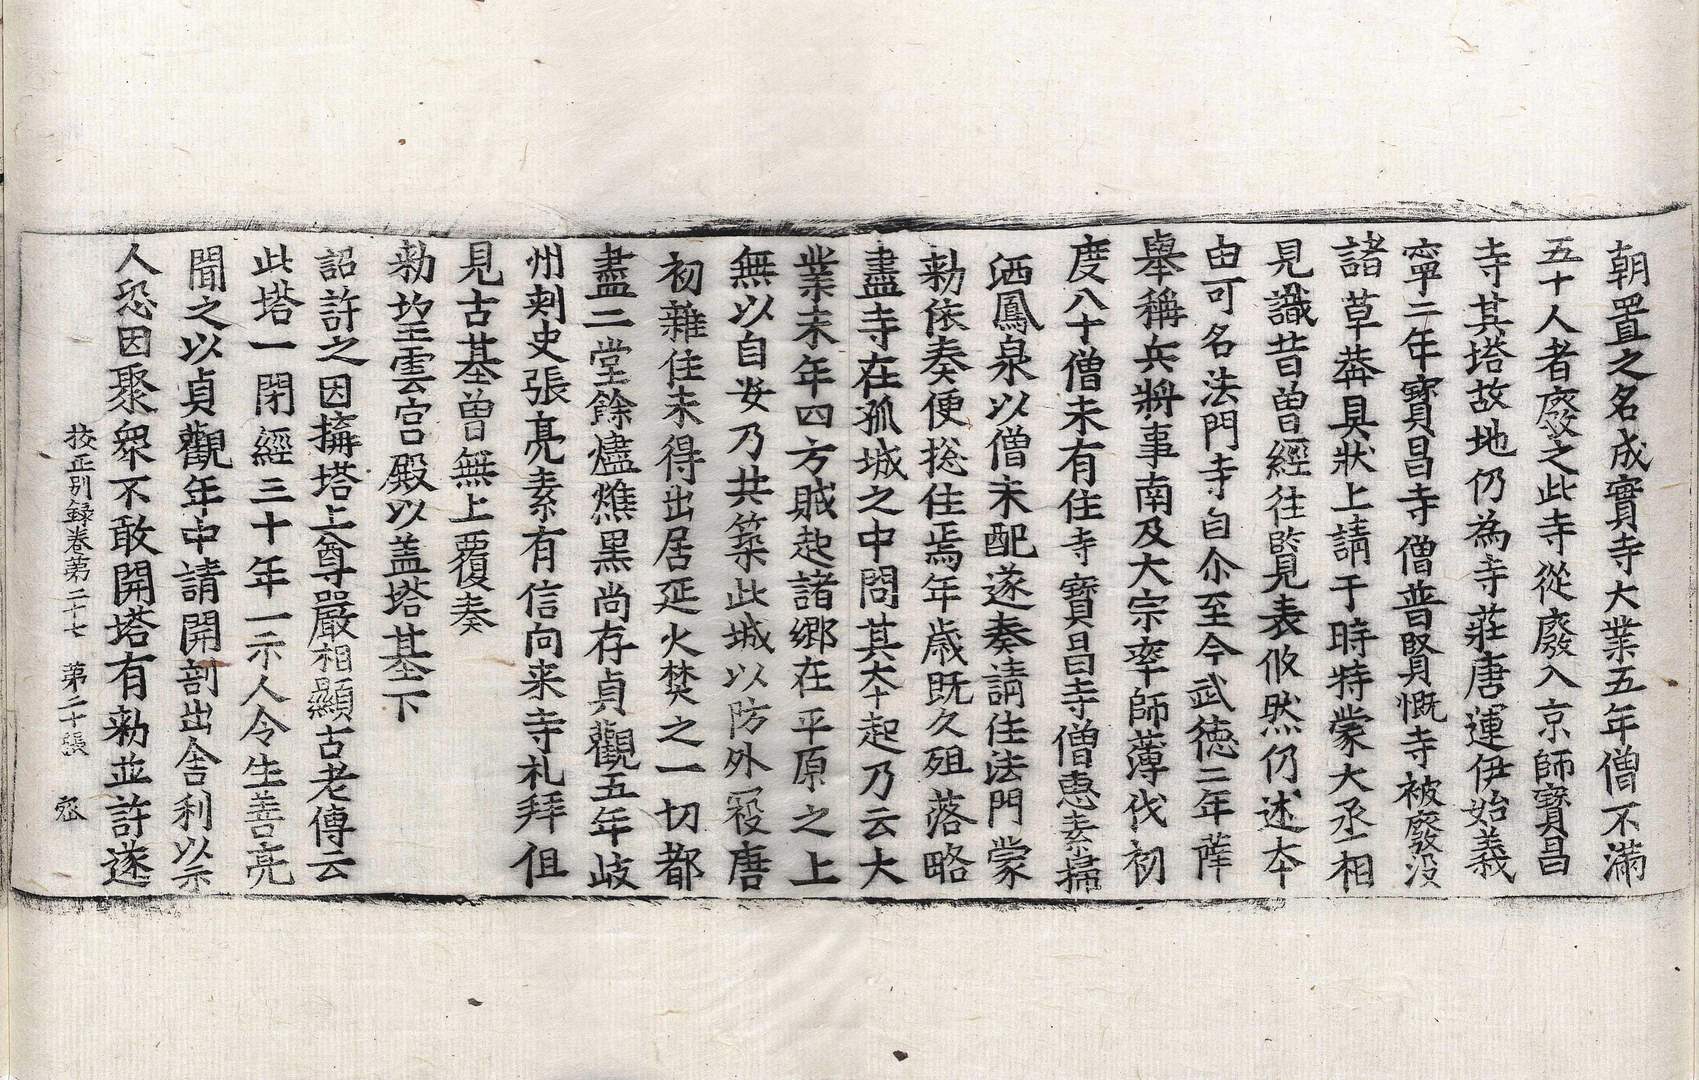 朝置之名成實寺大業五年僧不滿
五十人者廢之此寺從廢入京師寶昌
寺其塔故地仍為寺莊唐運伊始義
寧二年寶昌寺僧普賢慨寺被廢没
諸草莽具狀上請于時特蒙大丞相
見識昔曽經往覽表攸然仍述夲
由可名法門寺自尒至今武徳二年薛
舉稱兵將事南及大宗率師薄伐初
度八十僧未有住寺寶昌寺僧惠素掃
洒鳳泉以僧未配遂奏請住法門蒙
勅依奏便捴住焉年歳既久殂落略
盡寺在孤城之中問其夲起乃云大
業末年四方賊起諸郷在平原之上
無以自安乃共築此城以防外寇唐
初雜住未得出居延火焚之一切都
盡二堂餘燼燋黒尚存貞觀五年岐
州刾史張亮素有信向来寺礼拜但
見古基曽無上覆奏
勅望雲宫殿以盖塔基下
詔許之因搆塔上尊嚴相顯古老傳云
此塔一閉經三十年一示人令生善亮
聞之以貞觀年中請開剖出舍利以示
人恐因聚衆不敢開塔有勅並許遂
挍正别録卷第二十七　第二十張　宻